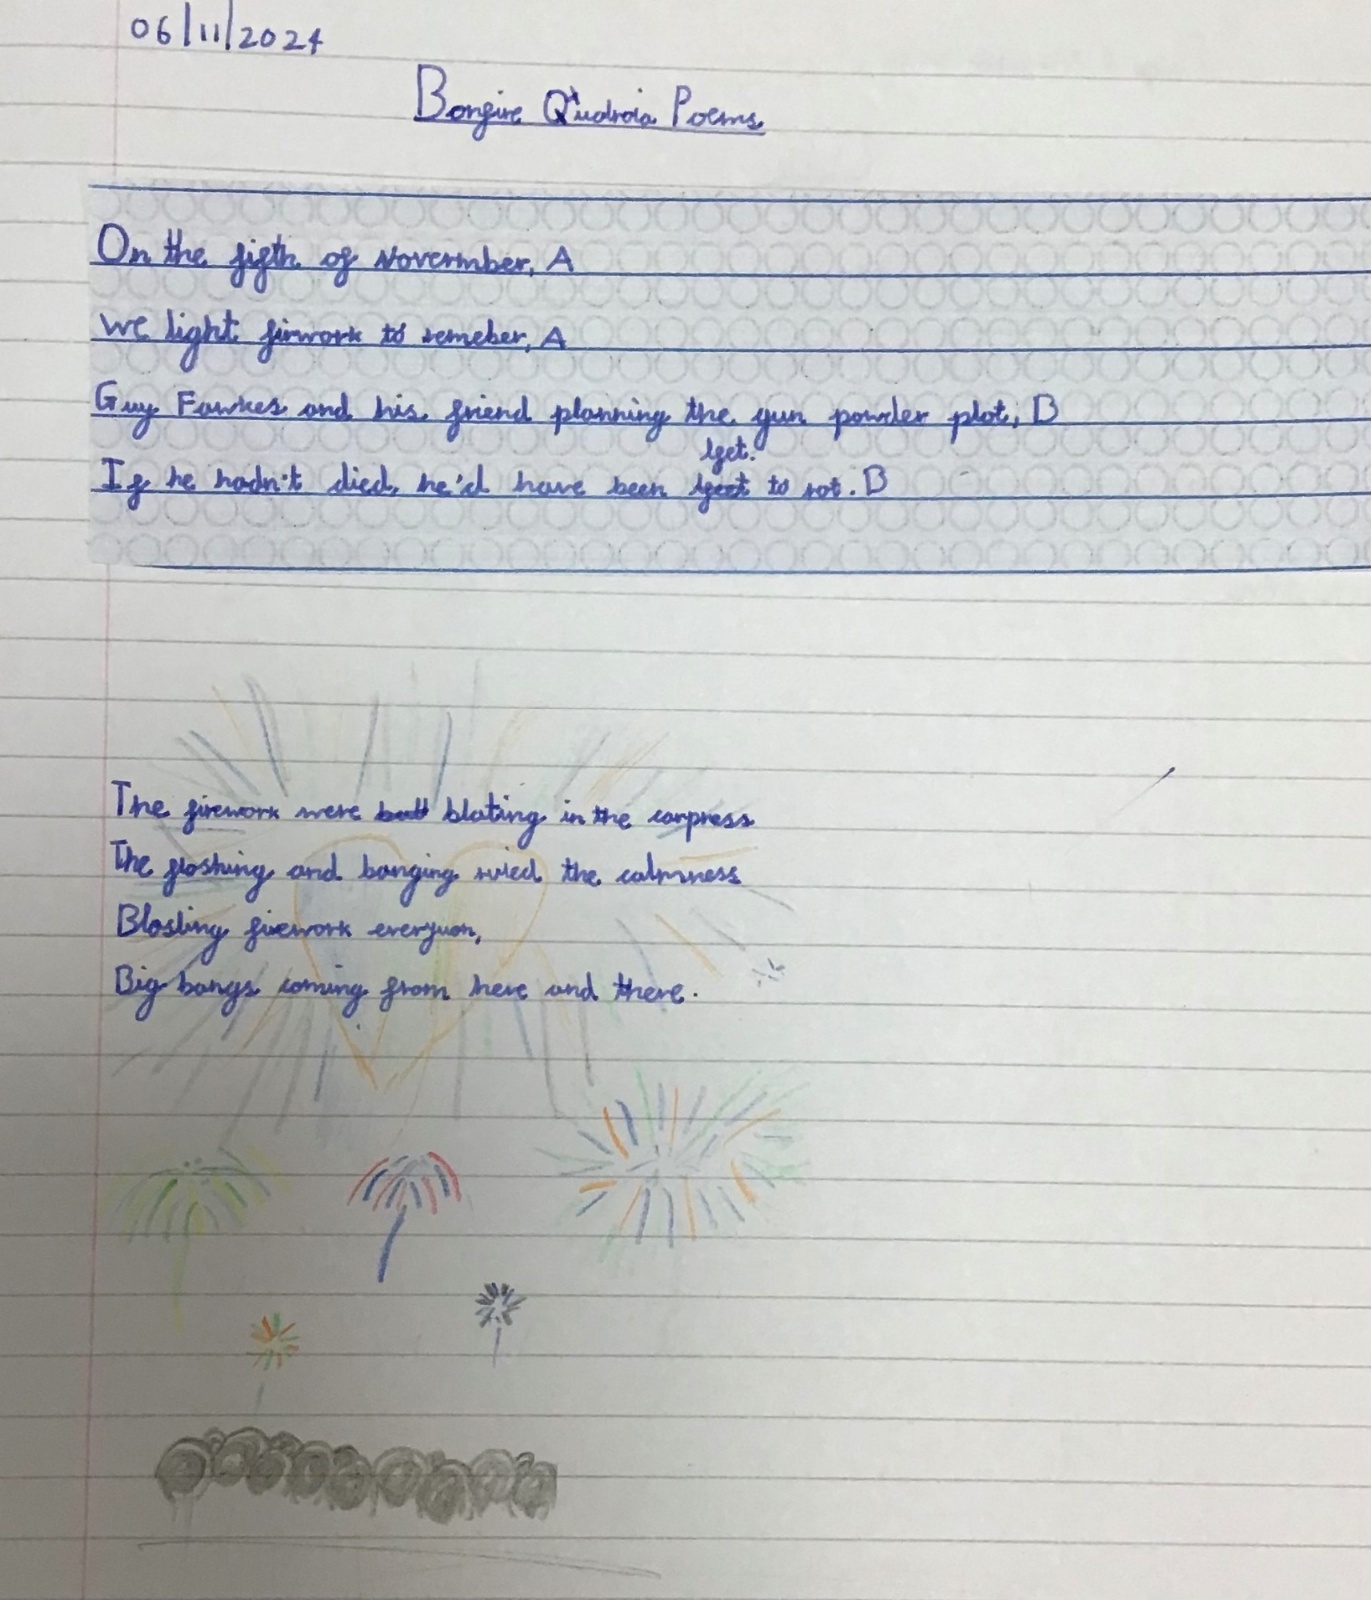 06/11/2024
Bonfire Qudraia Poems
On the fifth of Novermber, A
we light firwork to remeber, A
Guy Fawkes and his friend planning the gun powder plot, B
left.
If he hadn't died, he'd have been to rot. B
The firework were blating in the carpress
The floshing and banging ruied the calmness
Blasting firework everywon,
Big bangs coming from here and there.